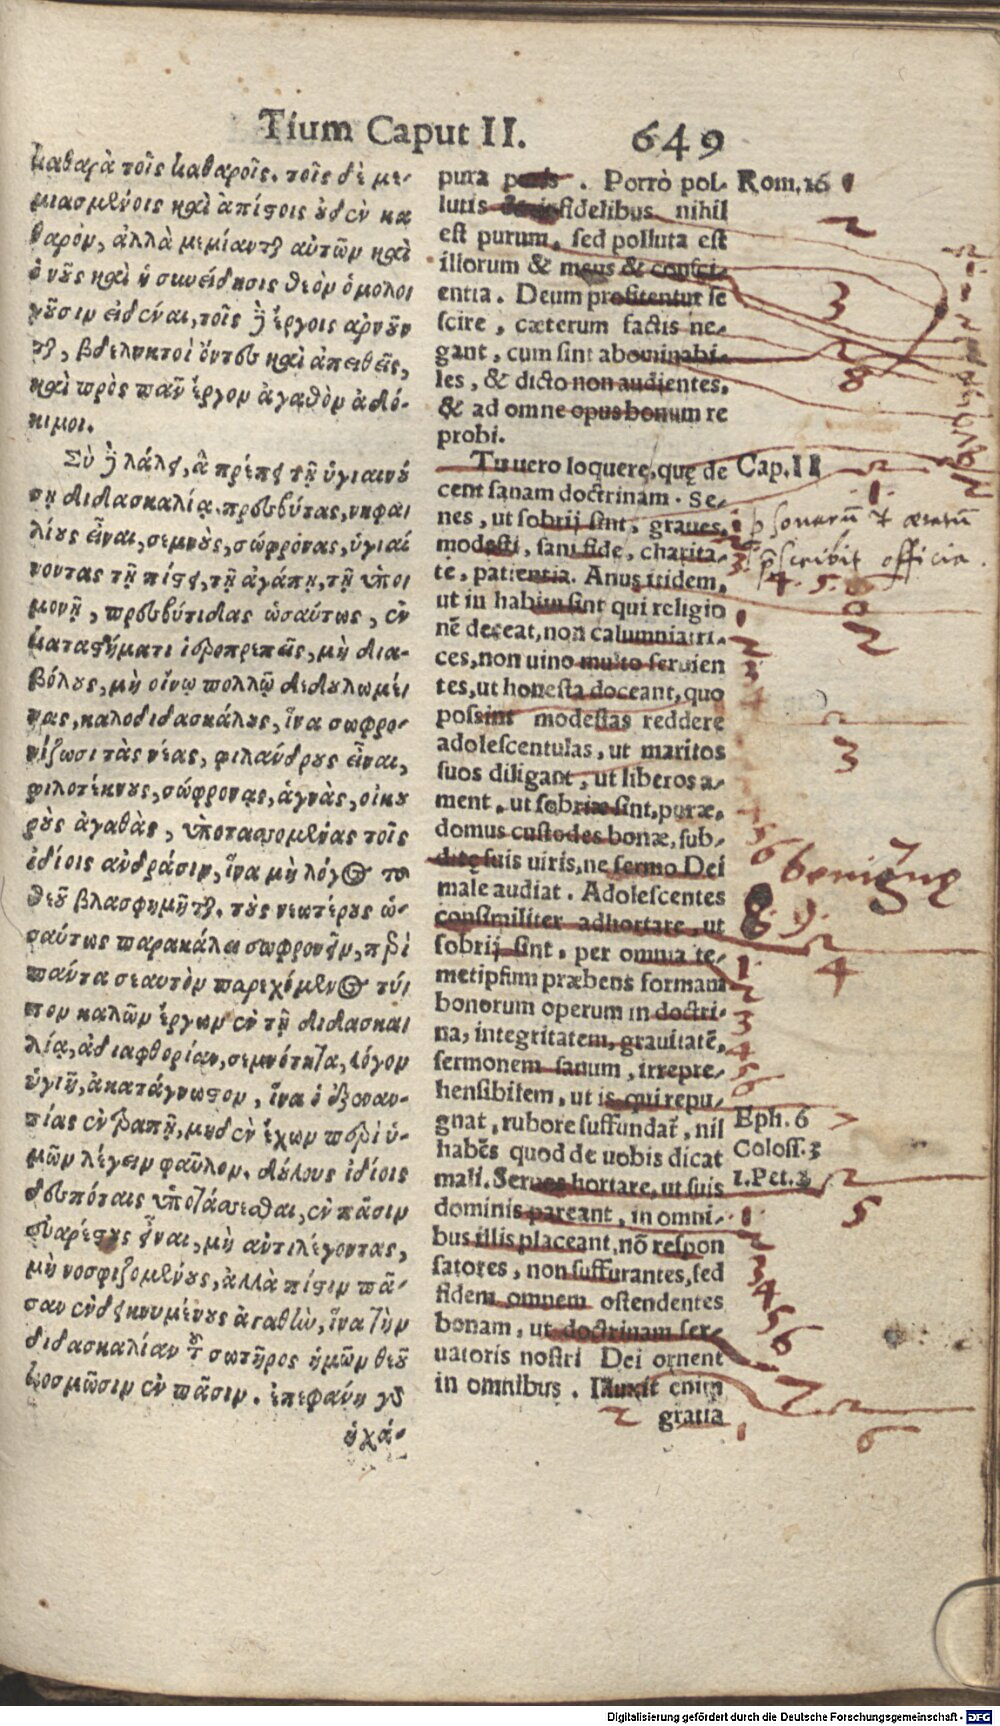 Tium Caput II. 649
καθαρὰ τοῖς καθαροῖς. τοῖς δὲ με-
μιασμένοις καὶ ἀπίστοις οὐδὲν κα
θαρὸν, ἀλλὰ μεμίανται αὐτῶν καὶ
ὁ νοῦς καὶ ἡ συνείδησις θεὸν ὁμολοι
γοῦσιν εἰδέναι, τοῖς δὲ ἔργοις ἀρνοῦν
ται, βδελυκτοὶ ὄντες καὶ ἀπειθεῖς,
καὶ πρὸς πᾶν ἔργον ἀγαθὸν ἀδό-
κιμοι.
Σὺ δὲ λάλει, ἃ πρέπει τῇ ὑγιαινού
σῃ διδασκαλίᾳ. πρεσβύτας, νηφαι
λίους εἶναι, σεμνοὺς, σώφρονας, ὑγιαί
νοντας τῇ πίστει, τῇ ἀγάπῃ, τῇ ὑποι
μονῇ, πρεσβύτιδας ὡσαύτως, ἐν
καταστήματι ἱεροπρεπεῖς, μὴ δια-
βόλους, μὴ οἴνῳ πολλῷ δεδουλωμέι
νας, καλοδιδασκάλους, ἵνα σωφρο-
νίζωσι τὰς νέας, φιλάνδρους εἶναι,
φιλοτέκνους, σώφρονας, ἁγνὰς, οἰκου
ροὺς ἀγαθὰς, ὑποτασσομένας τοῖς
ἰδίοις ἀνδράσιν, ἵνα μὴ λόγος τοῦ
θεοῦ βλασφημῆται. τοὺς νεωτέρους ὡ-
σαύτως παρακάλει σωφρονεῖν, περὶ
πάντα σεαυτὸν παρεχόμενος τύι
πον καλῶν ἔργων ἐν τῇ διδασκαι
λίᾳ, ἀδιαφθορίαν, σεμνότητα, λόγον
ὑγιῆ, ἀκατάγνωστον, ἵνα ὁ ἐξ ἐναν-
τίας ἐντραπῇ, μηδὲν ἔχων περὶ ὑ-
μῶν λέγειν φαῦλον. δούλους ἰδίοις
δεσπόταις ὑποτάσσεσθαι, ἐν πᾶσιν
εὐαρέστους εἶναι, μὴ ἀντιλέγοντας,
μὴ νοσφιζομένους, ἀλλὰ πίστιν πᾶ-
σαν ἐνδεικνυμένους ἀγαθὼ, ἵνα τὴν
διδασκαλίαν τοῦ σωτῆρος ἡμῶν θεοῦ
κοσμῶσιν ἐν πᾶσιν. ἐπεφάνη γὰρ
ἡ χά-
pura puris . Porrò pol-
lutis & infidelibus nihil
est purum, sed polluta est
illorum & mens & consci-
entia. Deum profitentur se
scire, cæterum factis ne-
gant, cum sint abominabi-
les, & dicto non audientes,
& ad omne opus bonum re
probi.
Tu uero loquere, quę de
cent sanam doctrinam. Se-
nes, ut sobrij sint, graues,
modesti, sani fide, charita-
te, patientia. Anus itidem,
ut in habitu sint qui religio
nē deceat, non calumniatri-
ces, non uino multo seruien
tes, ut honesta doceant, quo
possint modestas reddere
adolescentulas, ut maritos
suos diligant, ut liberos a-
ment, ut sobriæ sint, puræ,
domus custodes bonæ, sub-
ditę suis uiris, ne sermo Dei
male audiat. Adolescentes
consimiliter adhortare, ut
sobrij sint, per omnia te-
metipsum præbens formam
bonorum operum in doctri-
na, integritatem, grauitatē,
sermonem sanum, irrepre-
hensibilem, ut is qui repu-
gnat, rubore suffundat̃, nil
habēs quod de uobis dicat
mali. Seruos hortare, ut suis
dominis pareant, in omni-
bus illis placeant, nō respon
satores, non suffurantes, sed
fidem omnem ostendentes
bonam, ut doctrinam ser-
uatoris nostri Dei ornent
in omnibus. Illuxit enim
gratia
Rom. 16
2
3
8
Cap. II
1.
p̱sonarũ & ætatũ
p̱scribit officia.
4. 5.
2
3
benignę
8. 9.
4
Eph. 6
Coloss. 3
1. Pet. 2
5
1
2
3
4
5
6
7
6
2
1